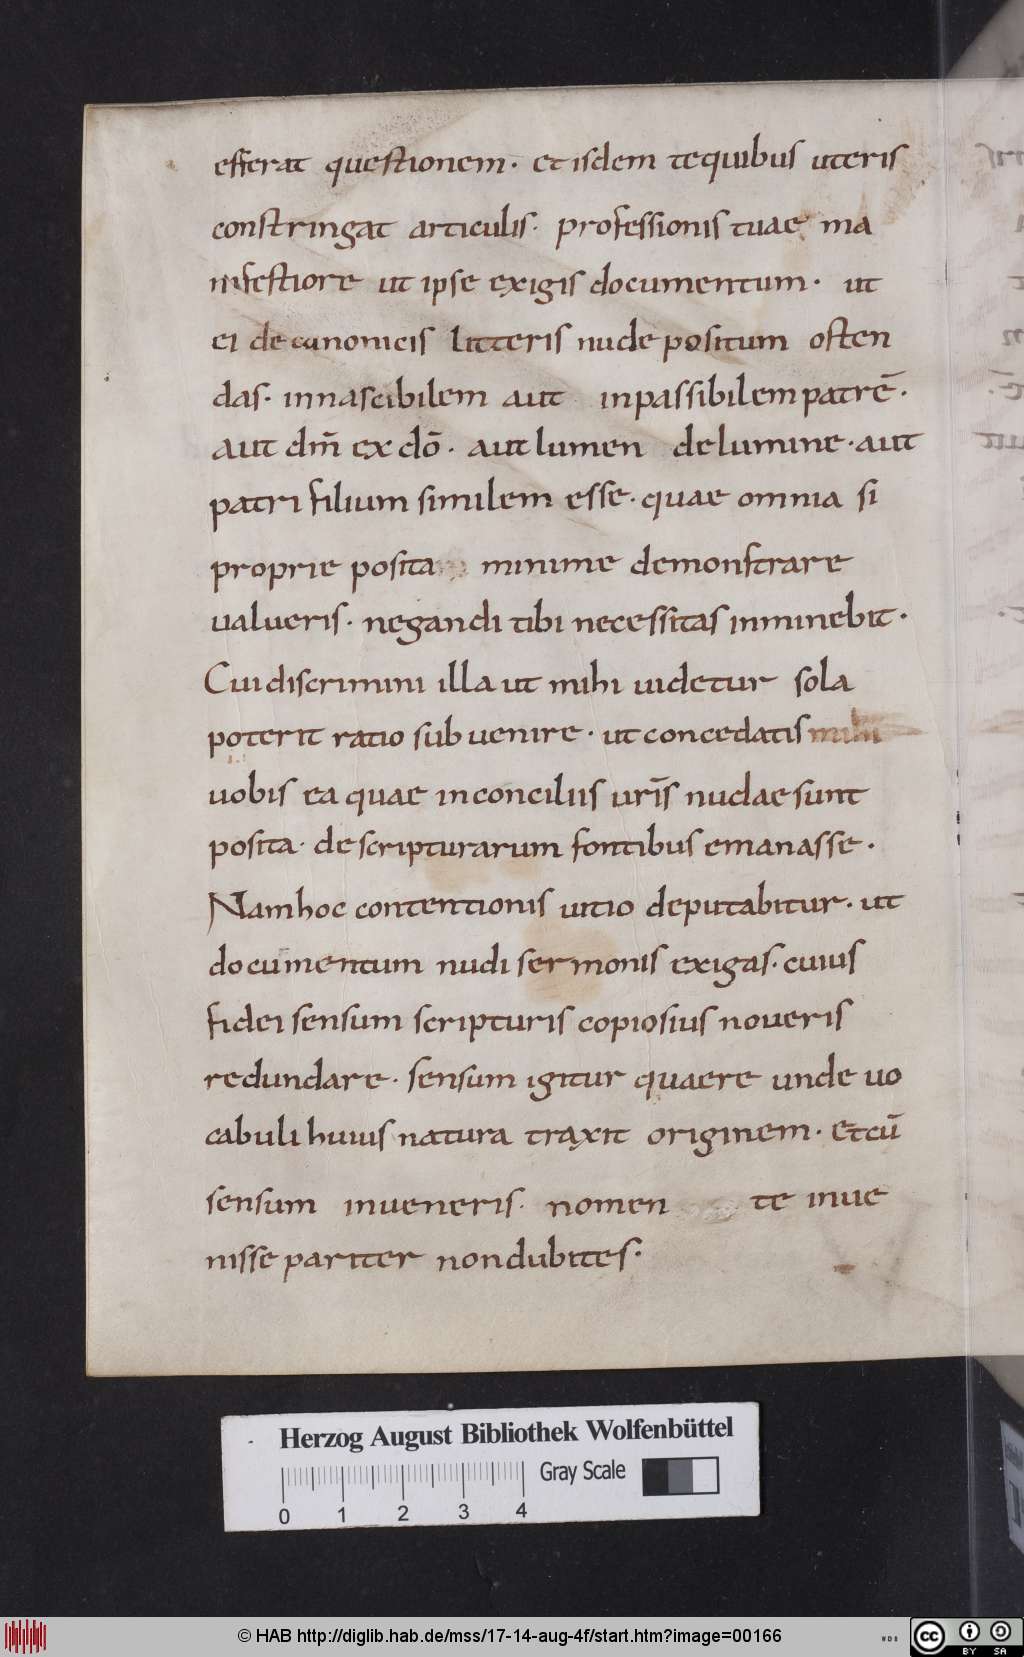 efferat questionem· et isdem te quibus uteris
constringat articulis· professionis tuae ma
nifestiore ut ipse exigis documentum· ut
ei de canonicis litteris nude positum osten
das· innascibilem aut inpassibilem patrē·
aut dm̄ ex dō· aut lumen de lumine· aut
patri filium similem esse· quae omnia si
proprie posita minime demonstrare
ualueris· negandi tibi necessitas inminebit·
Cui discrimini illa ut mihi uidetur sola
poterit ratio subuenire· ut concedatis mihi
uobis ea quae in conciliis ur̄is nudae sunt
posita· de scripturarum fontibus emanasse·
Nam hoc contentionis uitio deputabitur· ut
documentum nudi sermonis exigas· cuius
fidei sensum scripturis copiosius noueris
redundare· sensum igitur quaere unde uo
cabuli huius natura traxit originem· Et cū
sensum inueneris· nomen te inue
nisse pariter non dubites·
Herzog August Bibliothek Wolfenbüttel
Gray Scale
0 1 2 3 4
© HAB http://diglib.hab.de/mss/17-14-aug-4f/start.htm?image=00166
WDB
cc BY SA